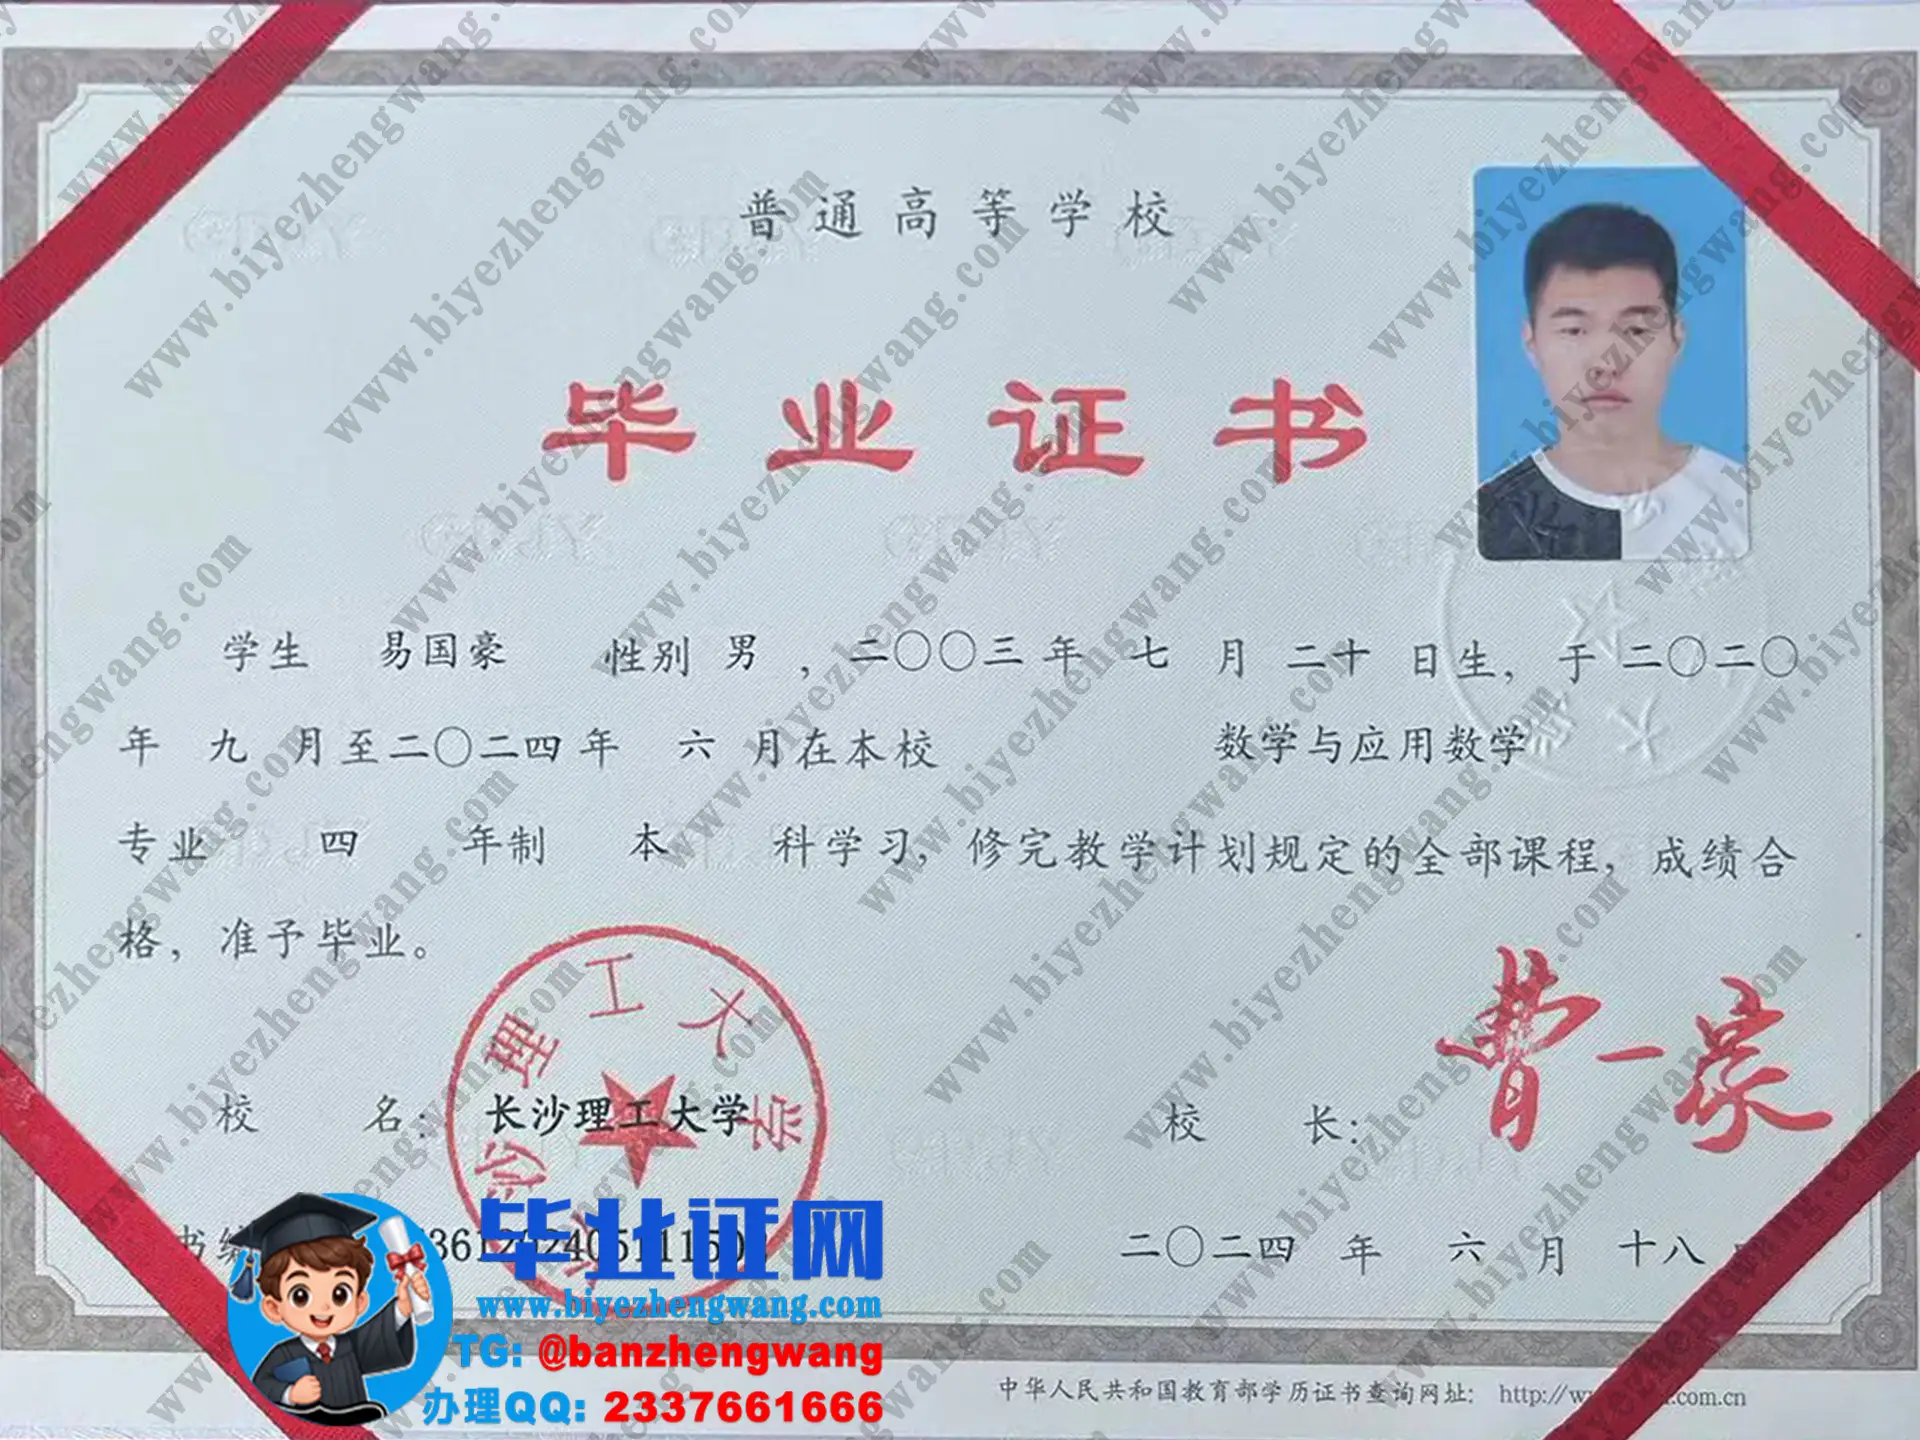 普通高等学校
毕业证书
学生 易国豪 性别 男 ，二〇〇三 年 七 月 二十 日生，于 二〇二〇
年 九 月至二〇二四 年 六 月在本校 数学与应用数学
专业 四 年制 本 科学习，修完教学计划规定的全部课程，成绩合
格，准予毕业。
长沙理工大学
校 名： 长沙理工大学
校 长：
费一豪
二〇二四 年 六 月 十八
毕业证网
www.biyezhengwang.com
TG: @banzhengwang
办理QQ: 2337661666
中华人民共和国教育部学历证书查询网址：
www.biyezhengwang.com